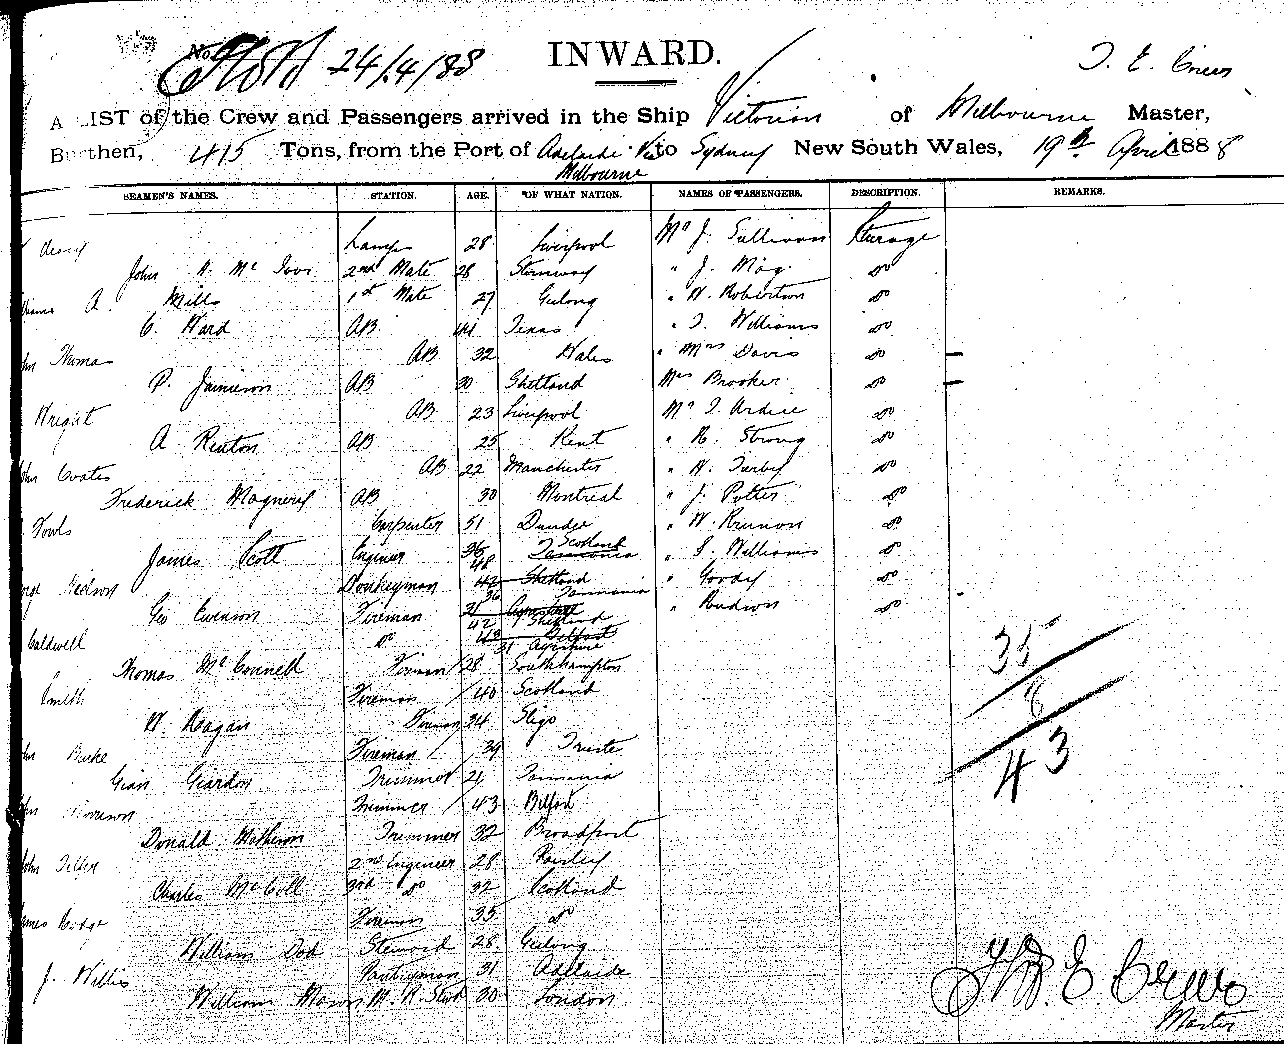 No 24/4/88 INWARD. T. E. Crews
A LIST of the Crew and Passengers arrived in the Ship Victorian of Melbourne Master,
Burthen, 415 Tons, from the Port of Adelaide Via to Sydney New South Wales, 19th April 1888
Melbourne
SEAMEN'S NAMES. STATION. AGE. OF WHAT NATION. NAMES OF PASSENGERS. DESCRIPTION. REMARKS.
Lamps 28 Liverpool Mr J. Sullivan Steerage
John 2nd Mate 28 " J. May do
A. Mills 1st Mate 27 Geelong " W. Robertson do
C. Ward AB 44 Texas " T. Williams do
Thomas AB 32 Wales " Mrs Davis do
P. Jamieson AB 30 Shetland Mrs Brooker do
Wright AB 23 Liverpool Mr T. do
A Renton AB 25 Kent " R. Strong do
Coates AB 22 Manchester " do
Frederick AB 30 Montreal " J. Potter do
Carpenter 51 Dundee " do
James Scott Engineer 36 48 Scotland Tasmania " S. Williams do
Nelson Donkeyman 42 36 Shetland Tasmania " Goody do
Geo Evenson Fireman 31 42 Shetland " do
Caldwell do 43 31 Belfast Ayrshire
35
Thomas McConnell Fireman 28 Southampton
Smith Fireman 40 Scotland
8
W. Hagan Fireman 34 Sligo
Burke Fireman 39 Trieste
43
Trimmer 21 Tasmania
Morrison Trimmer 43 Belfast
Donald Matheson Trimmer 32 Broadford
2nd Engineer 28 Paisley
Charles McColl 3rd do 32 Scotland
Fireman 35 do
William Dod Steward 28 Geelong
J. Willis Pantryman 31 Adelaide
William Mason 30 London
Thos. E. Crews
Master